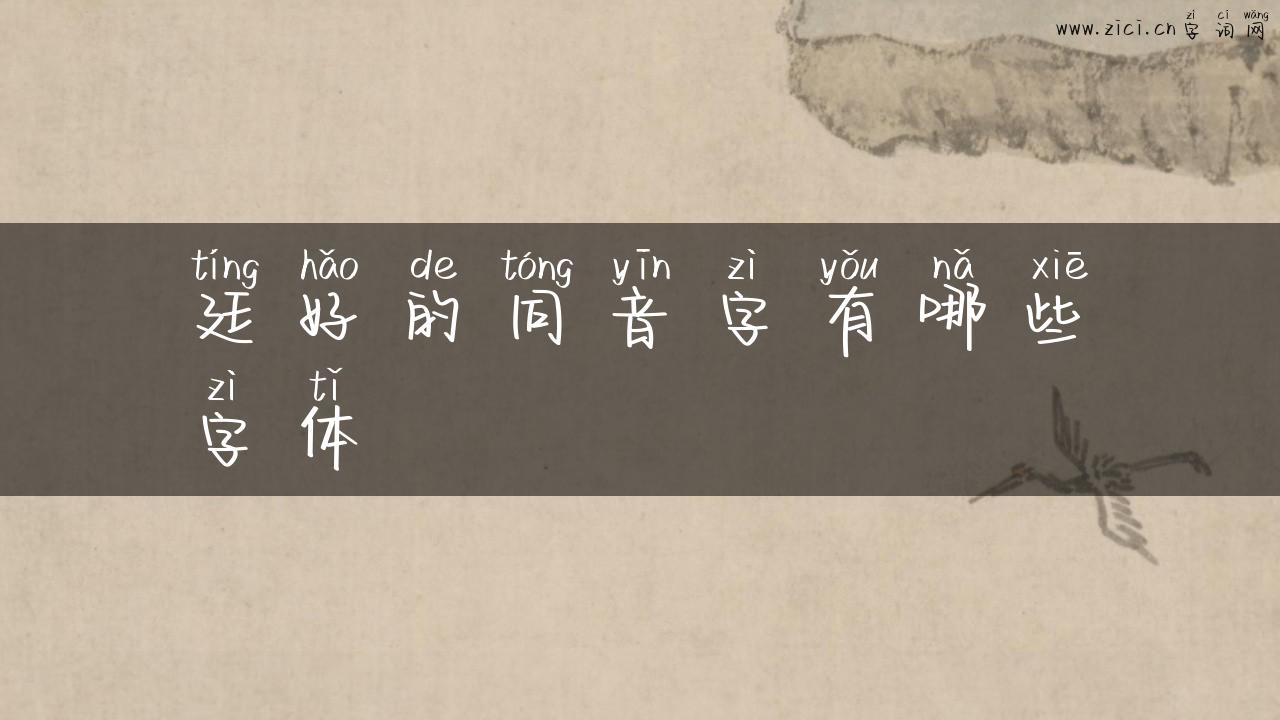 zì cí wǎng
www.zici.cn 字 词 网
tíng hǎo de tóng yīn zì yǒu nǎ xiē
廷 好 的 同 音 字 有 哪 些
zì tǐ
字 体